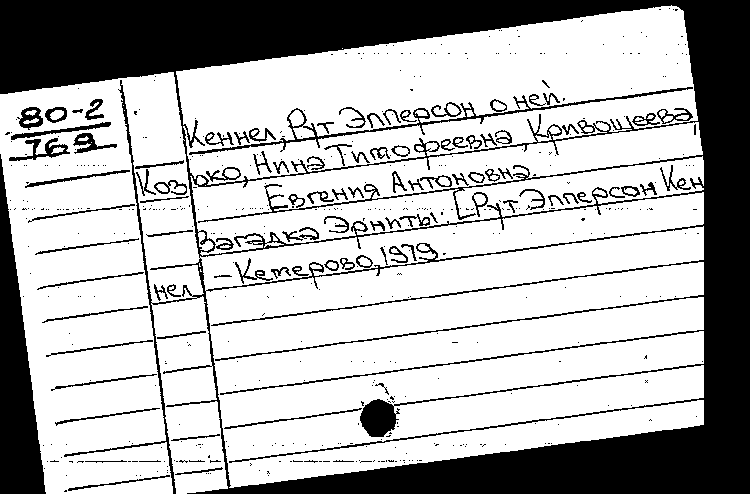 80-2
769
Кеннел, Рут Эпперсон, о ней.
Козюко, Нина Тимофеевна, Кривошеева,
Евгения Антоновна.
Загадка Эрниты. [Рут Эпперсон Кен
нел - Кемерово, 1979.